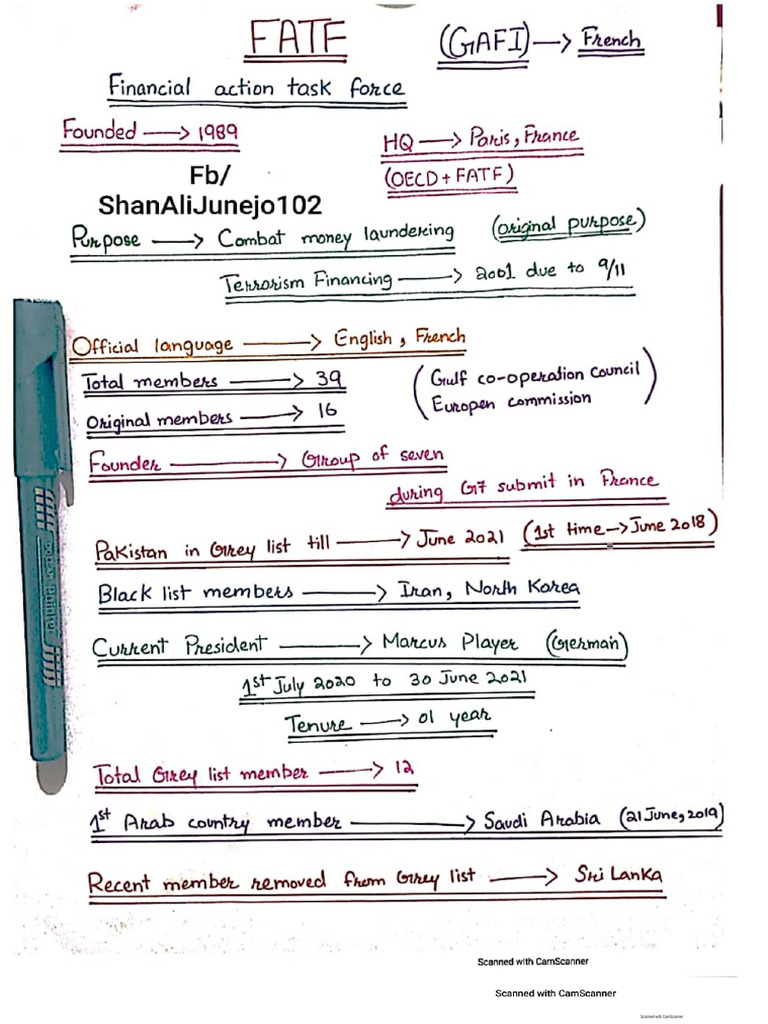 FATF (GAFI) → French
Financial action task force
Founded → 1989
HQ → Paris, France
(OECD + FATF)
Fb/
ShanAliJunejo102
Purpose → Combat money laundering (original purpose)
Terrorism Financing → 2001 due to 9/11
Official language → English, French
Total members → 39
Original members → 16
(Gulf co-operation Council
Europen commission)
Founder → Group of seven
during G7 submit in France
Pakistan in Grey list till → June 2021 (1st time → June 2018)
Black list members → Iran, North Korea
Current President → Marcus Player (German)
1st July 2020 to 30 June 2021
Tenure → 01 year
Total Grey list member → 12
1st Arab country member → Saudi Arabia (21 June, 2019)
Recent member removed from Grey list → Sri Lanka
Scanned with CamScanner
Scanned with CamScanner
Scanned with CamScanner